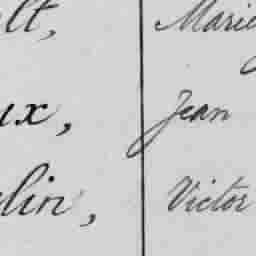 lt, Marie
ux, Jean
lin, Victor